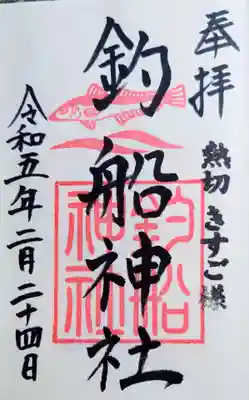 奉拝
熱切 きすご様
釣船神社
釣船神社
令和五年二月二十四日